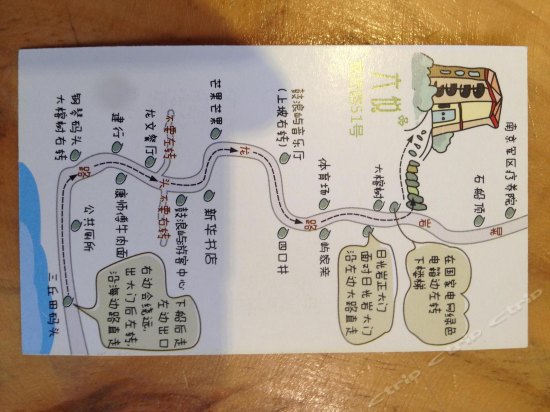 六悦
51号
南京军区疗养院
石船顶
大榕树
体育场
鼓浪屿音乐厅
(上坡右转)
芒果芒果
不要左转
龙文餐厅
建行
钢琴码头
大榕树右转
路
头
龙
路
岩
晃
不要右转
鼓浪屿游客中心
新华书店
四口井
屿浓亲
康师傅牛肉面
公共厕所
三丘田码头
下船后走
左边出口
出大门后左转,
右边会绕远,
沿海边路直走
日光岩正大门
面对日光岩大门
沿左边大路直走
在国家电网绿色
电箱边左转
下楼梯
Ctrip
Ctrip
Ctrip